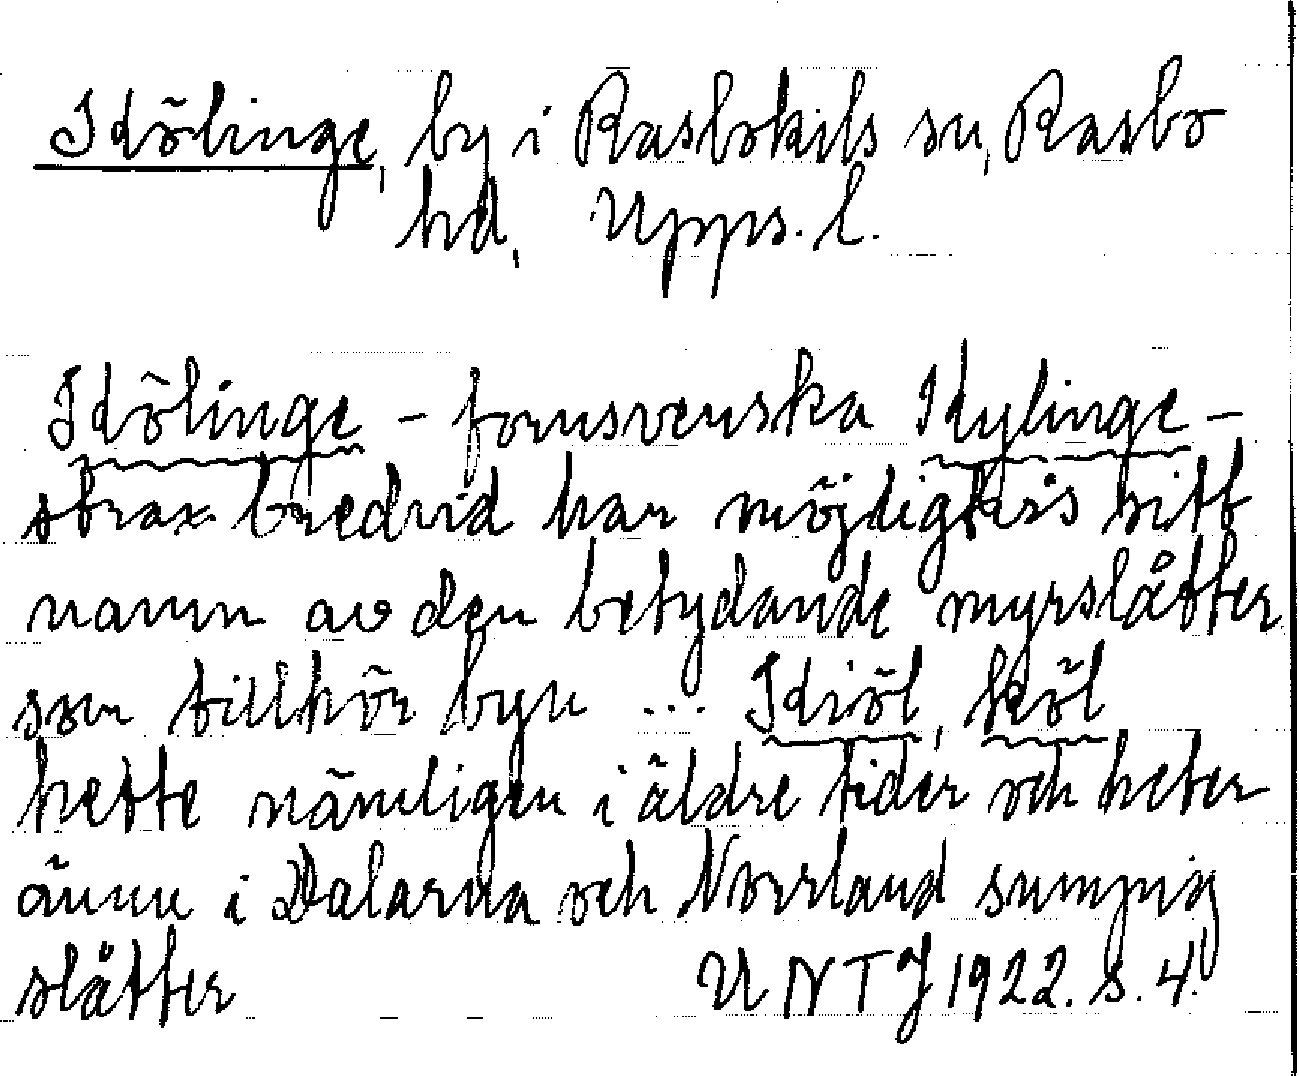 Idölinge, by i Rasbokils sn, Rasbo
hd, Upps. l.
Idölinge - fornsvenska Idylinge -
strax bredvid har möjligtvis sitt
namn av den betydande myrslåtter
som tillhör byn ... Idiöl, köl
hette nämligen i äldre tider och heter
ännu i Dalarna och Norrland sumpig
slåtter UNTJ 1922. s. 4.